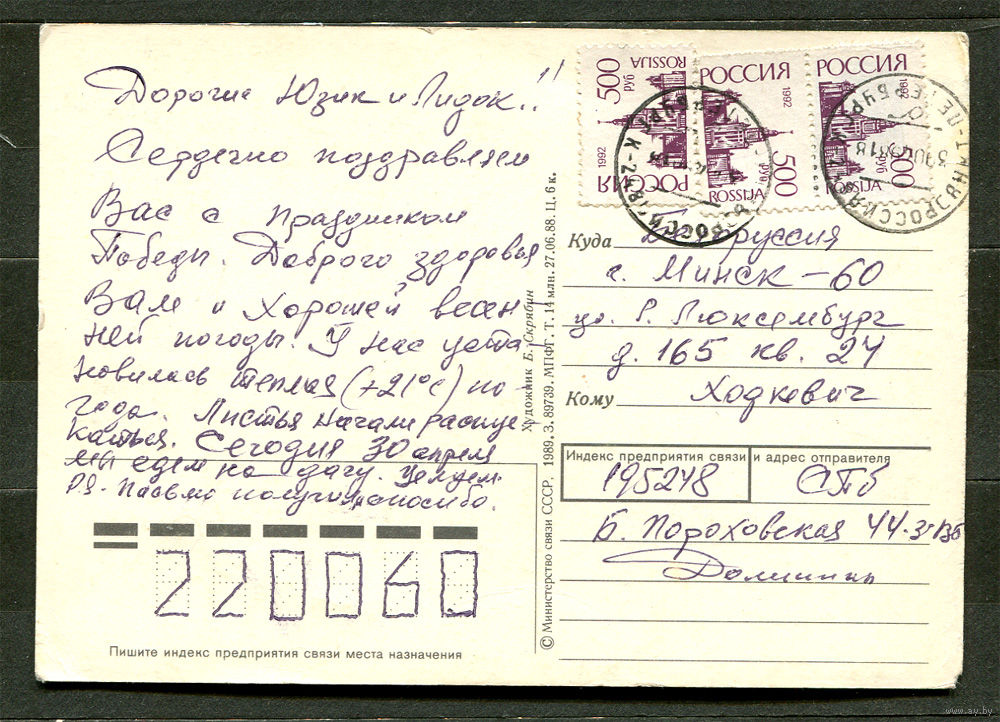 Дорогие Юзик и Лидок..!!
Сердечно поздравляем
Вас с праздником
Победы. Доброго здоровья
Вам и Хорошей весен
ней погоды. У нас уста
новилась теплая (+21°с) по
года. Листья начали распус
каться. Сегодня 30 апреля
мы едем на дачу. Целуем.
P.S. Письмо получили спасибо.
220060
Пишите индекс предприятия связи места назначения
© Министерство связи СССР, 1989. З. 89739. МПФГ. Т. 14 млн. 27.06.88. Ц. 6 к.
Художник Б. Скрябин
500 руб ROSSIJA
1992 РОССИЯ
РОССИЯ 1992
500 руб
ROSSIJA
РОССИЯ 1992
500 руб
ROSSIJA
Куда Белоруссия
г. Минск-60
ул. Р. Люксембург
д. 165 кв. 24
Кому Ходкевич
Индекс предприятия связи и адрес отправителя
195248 СПб
Б. Пороховская 44-3-
www.ay.by